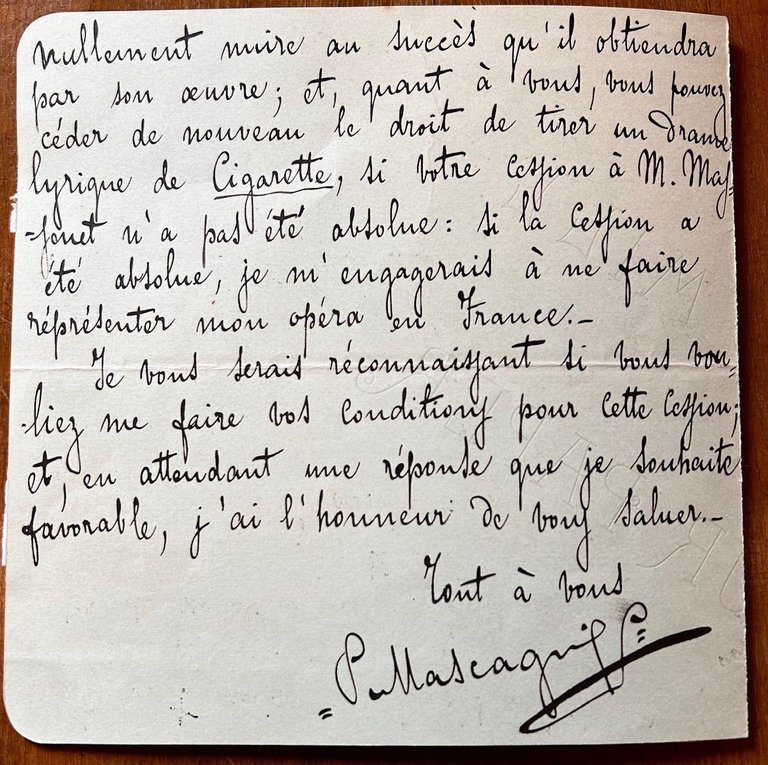 nullement nuire au succès qu'il obtiendra
par son œuvre; et, quant à vous, vous pouvez
céder de nouveau le droit de tirer un drame
lyrique de Cigarette, si votre cession à M. Mas=
=senet n'a pas été absolue: si la cession a
été absolue, je m'engagerais à ne faire
réprésenter mon opéra en France.—
Je vous serais réconnaissant si vous vou=
=liez me faire vos conditions pour cette cession;
et, en attendant une réponse que je souhaite
favorable, j'ai l'honneur de vous saluer.—
Tout à vous
=P. Mascagni=